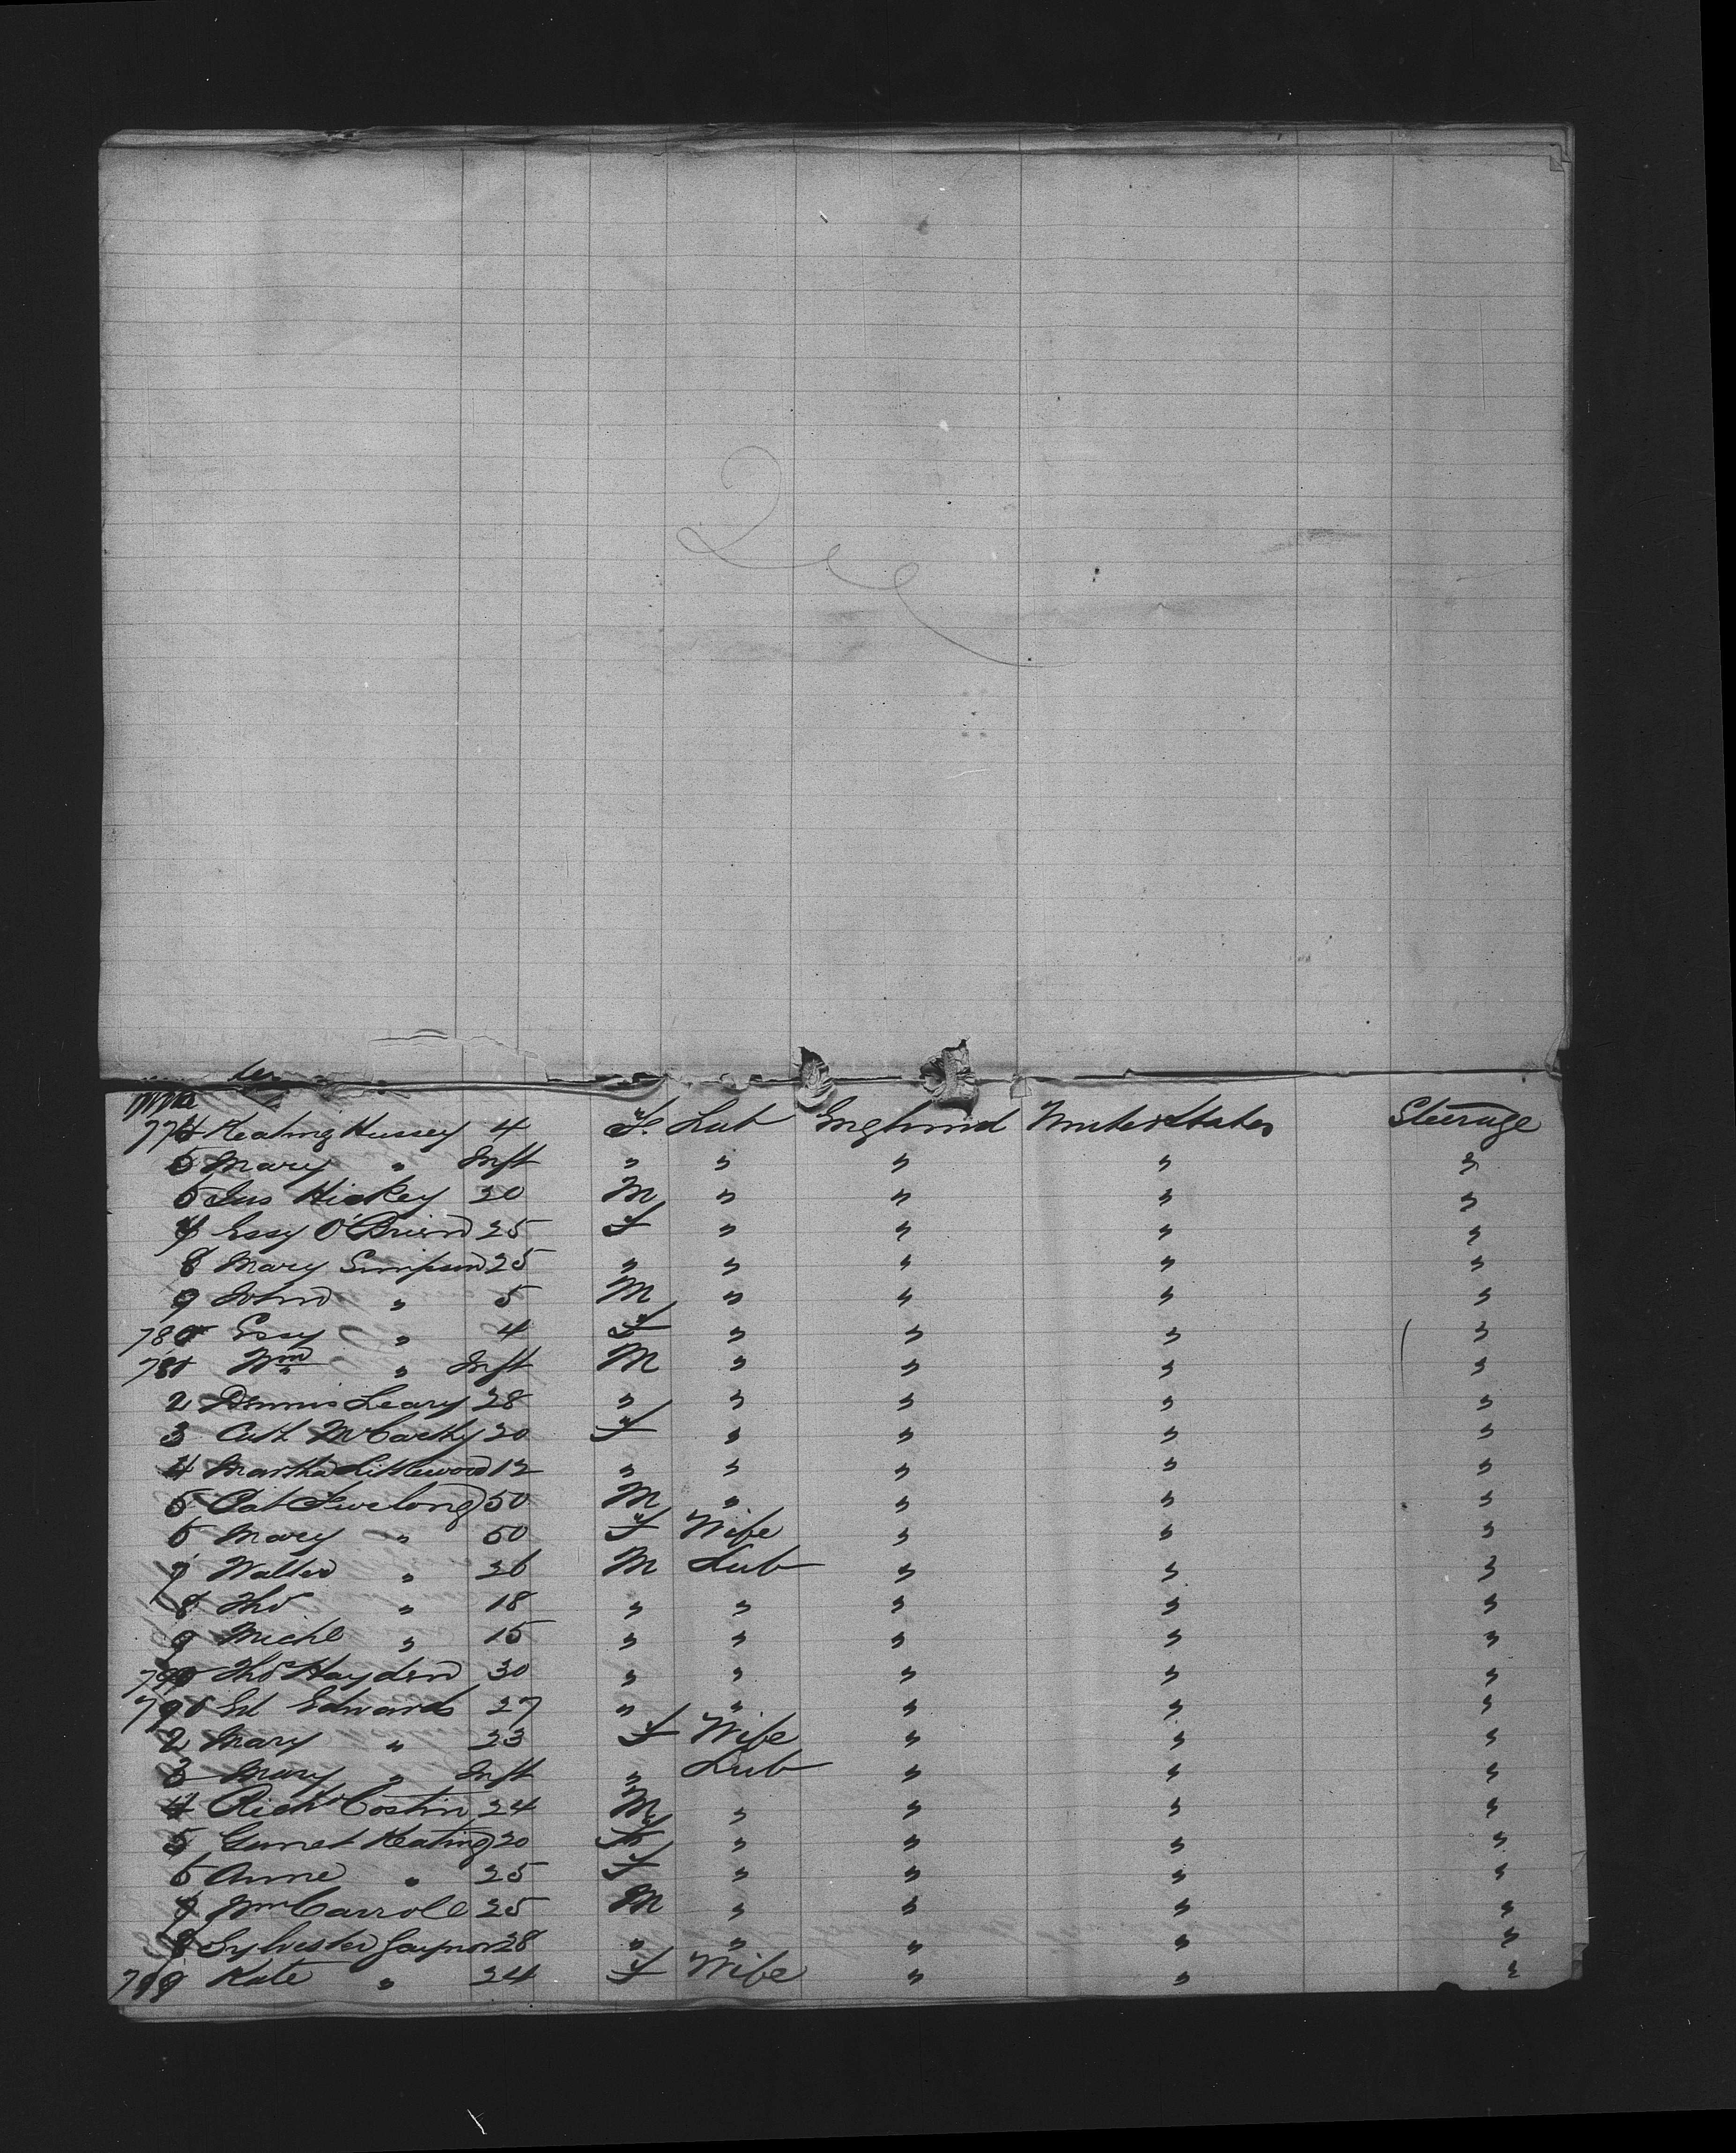 774 Keating Hussey 4 F. Lab England United States Steerage
5 Mary " Inft " " " " "
6 Jas Hickey 20 M " " " "
7 Essy O'Brien 25 F " " " "
8 Mary Simpson 25 " " " " "
9 John " 5 M " " " "
780 Essy " 4 F " " " "
781 Wm " Inft M " " " "
2 Dennis Leary 28 " " " " "
3 Cath McCarthy 20 F " " " "
4 Martha Littlewood 12 " " " " "
5 Pat Furlong 50 M " " " "
6 Mary " 50 F Wife " " "
7 Walter " 26 M Lab " " "
8 Thos " 18 " " " " "
9 Michl " 15 " " " " "
790 Thos Hayden 30 " " " " "
790 Ed Edwards 27 " " " " "
2 Mary " 23 F Wife " " "
3 Mary " Inft " Lab " " "
4 Richd Costin 24 M " " " "
5 Garret Keating 20 " " " "
6 Anne " 25 F " " " "
7 Wm Carroll 25 M " " " "
8 Sylvester Gaynor 28 " " " " "
799 Kate " 24 F Wife " " "